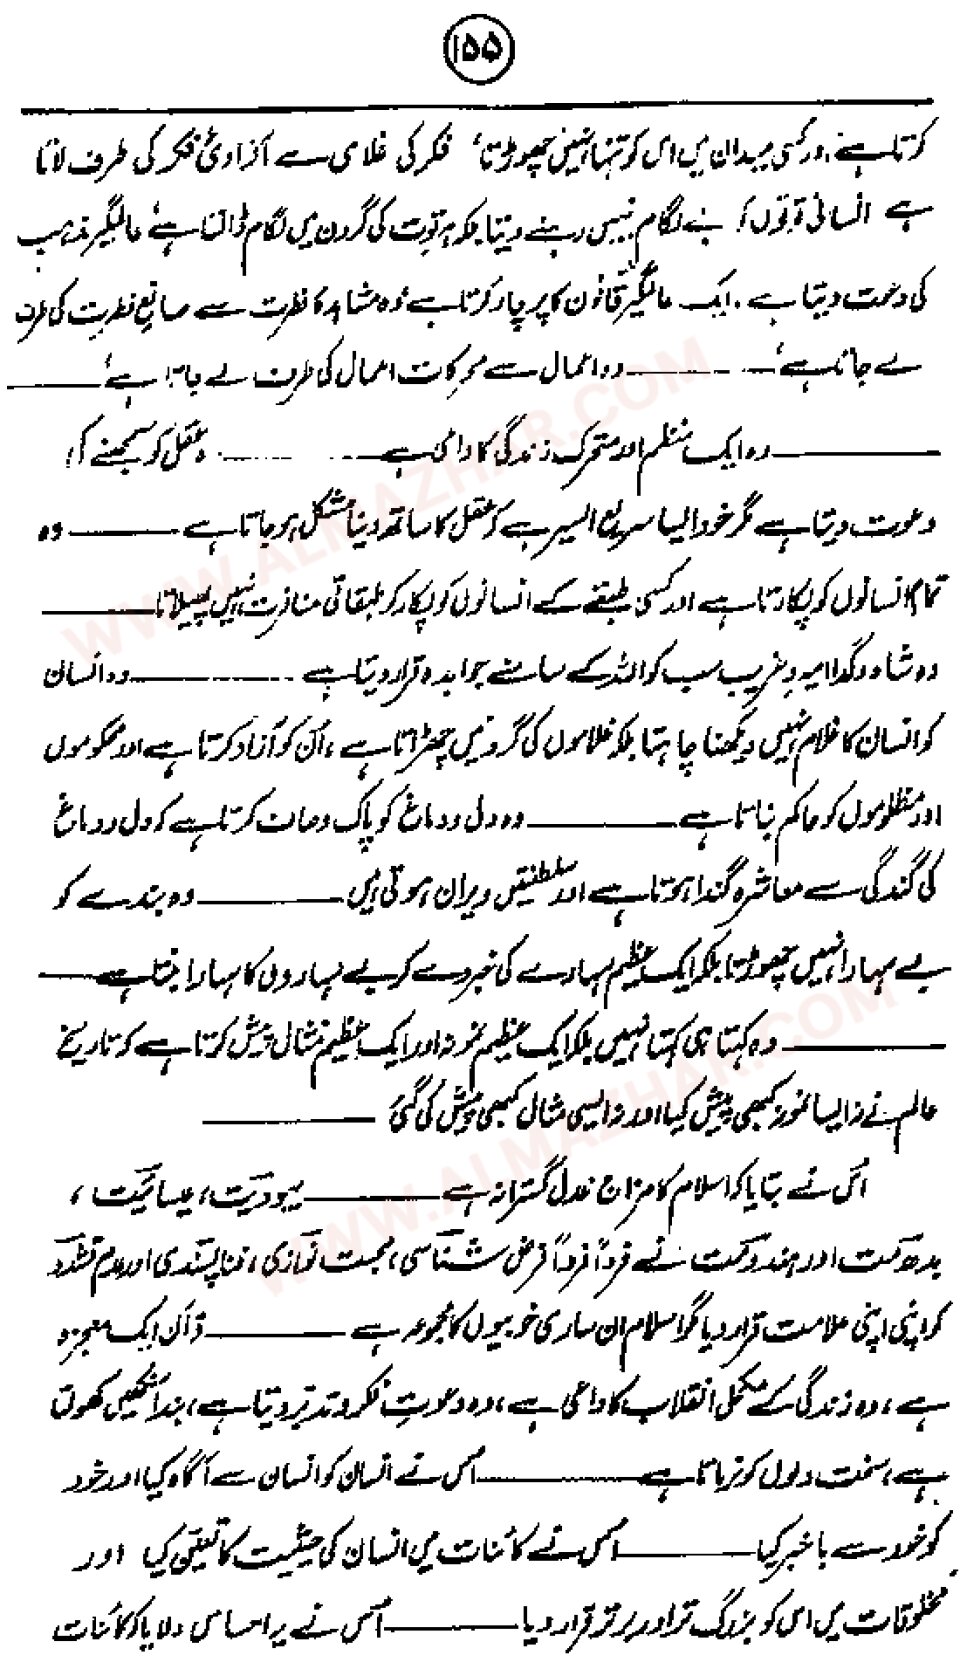 ۱۵۵
کرتا ہے ، در کسی میدان میں اس کو تنہا نہیں چھوڑتا ، فکر کی غلامی سے آزادئ فکر کی طرف لاتا
ہے انسانی قوتوں کو بے لگام نہیں رہنے دیتا بلکہ ہر قوت کی گردن میں لگام ڈالتا ہے ، عالمگیر مذہب
کی دعوت دیتا ہے ۔ ایک عالمگیر قانون کا پرچار کرتا ہے ، وہ مشاہدۂ فطرت سے صانعِ فطرت کی طرف
لے جاتا ہے ، ——— وہ اعمال سے محرکات اعمال کی طرف لے جاتا ہے ، ———
——— وہ ایک منظم اور متحرک زندگی کا داعی ہے ——— وہ عقل کو سمجھنے کی
دعوت دیتا ہے مگر خود ایسا سریع السیر ہے کہ عقل کا ساتھ دینا مشکل ہو جاتا ہے ——— وہ
تمام انسانوں کو پکارتا ہے اور کسی طبقے کے انسانوں کو پکار کو طبقاتی منافرت نہیں پھیلاتا ———
وہ شاہ و گدا امیر و غریب سب کو اللہ کے سامنے جوابدہ قرار دیتا ہے ——— وہ انسان
کو انسان کا غلام نہیں دیکھنا چاہتا بلکہ غلاموں کی گردنیں چھڑاتا ہے ، اُن کو آزاد کرتا ہے اور محکوموں
اور مظلوموں کو حاکم بناتا ہے ——— وہ دل و دماغ کو پاک و صاف کرتا ہے کہ دل و دماغ
کی گندگی سے معاشرہ گندا ہوتا ہے اور سلطنتیں ویران ہوتی ہیں ——— وہ بندے کو
بے سہارا نہیں چھوڑتا بلکہ ایک عظیم سہارے کی خبر دے کر بے سہاروں کا سہارا بنتا ہے ———
——— وہ کہتا ہی کہتا نہیں بلکہ ایک عظیم نمونہ اور ایک عظیم مثال پیش کرتا ہے کہ تاریخ
عالم نے نہ ایسا نمونہ کبھی پیش کیا اور نہ ایسی مثال کبھی پیش کی گئی ———
اُس نے بتایا کہ اسلام کا مزاج عدل گسترانہ ہے ——— یہودیت ، عیسائیت ،
بدھ مت اور ہندو مت نے فرداً فرداً فرض شناسی ، محبت نوازی ، فنا پسندی اور عدم تشدد
کو اپنی اپنی علامت قرار دیا مگر اسلام ان ساری خوبیوں کا مجموعہ ہے ——— قرآن ایک معجزہ
ہے ، وہ زندگی کے مکمل انقلاب کا داعی ہے ، وہ دعوتِ فکر و تدبر دیتا ہے ، بند آنکھیں کھولتا
ہے ، سخت دلوں کو نرماتا ہے ——— اُس نے انسان کو انسان سے آگاہ کیا اور خود
کو خود سے باخبر کیا ——— اُس نے کائنات میں انسان کی حیثیت کا تعین کیا اور
مخلوقات میں اس کو بزرگ تر اور برتر قرار دیا ——— اُس نے یہ احساس دلایا کہ کائنات
WWW.ALMAZHAR.COM
WWW.ALMAZHAR.COM